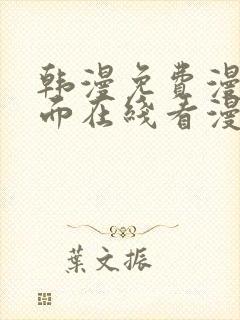 韩漫免费漫
面在线看漫
葉文振